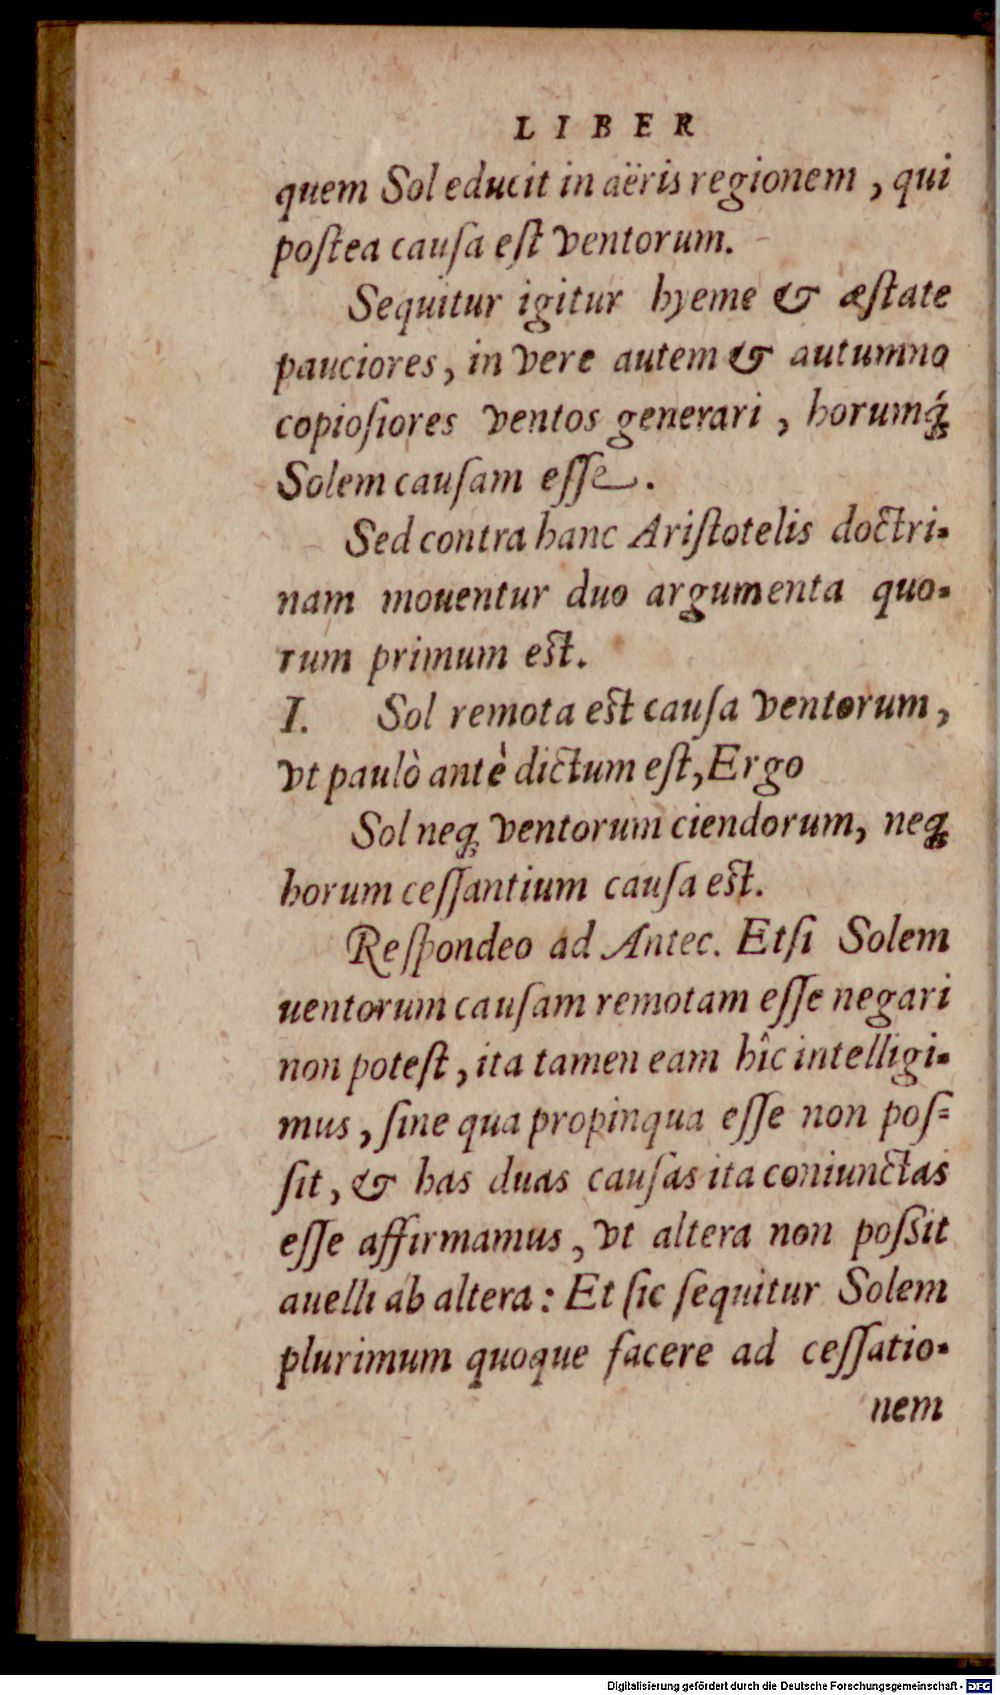 LIBER
quem Sol educit in aëris regionem, qui
poſtea cauſa eſt ventorum.
Sequitur igitur hyeme & æſtate
pauciores, in vere autem & autumno
copioſiores ventos generari, horumq́;
Solem cauſam eſſe.
Sed contra hanc Ariſtotelis doctri-
nam mouentur duo argumenta quo-
rum primum eſt.
I. Sol remota eſt cauſa ventorum,
vt paulò antè dictum eſt, Ergo
Sol neq; ventorum ciendorum, neq;
horum ceſſantium cauſa eſt.
Reſpondeo ad Antec. Etſi Solem
uentorum cauſam remotam eſſe negari
non poteſt, ita tamen eam hîc intelligi-
mus, ſine qua propinqua eſſe non poſ-
ſit, & has duas cauſas ita coniunctas
eſſe affirmamus, vt altera non poſsit
auelli ab altera: Et ſic ſequitur Solem
plurimum quoque facere ad ceſſatio-
nem
Digitalisierung gefördert durch die Deutsche Forschungsgemeinschaft - DFG